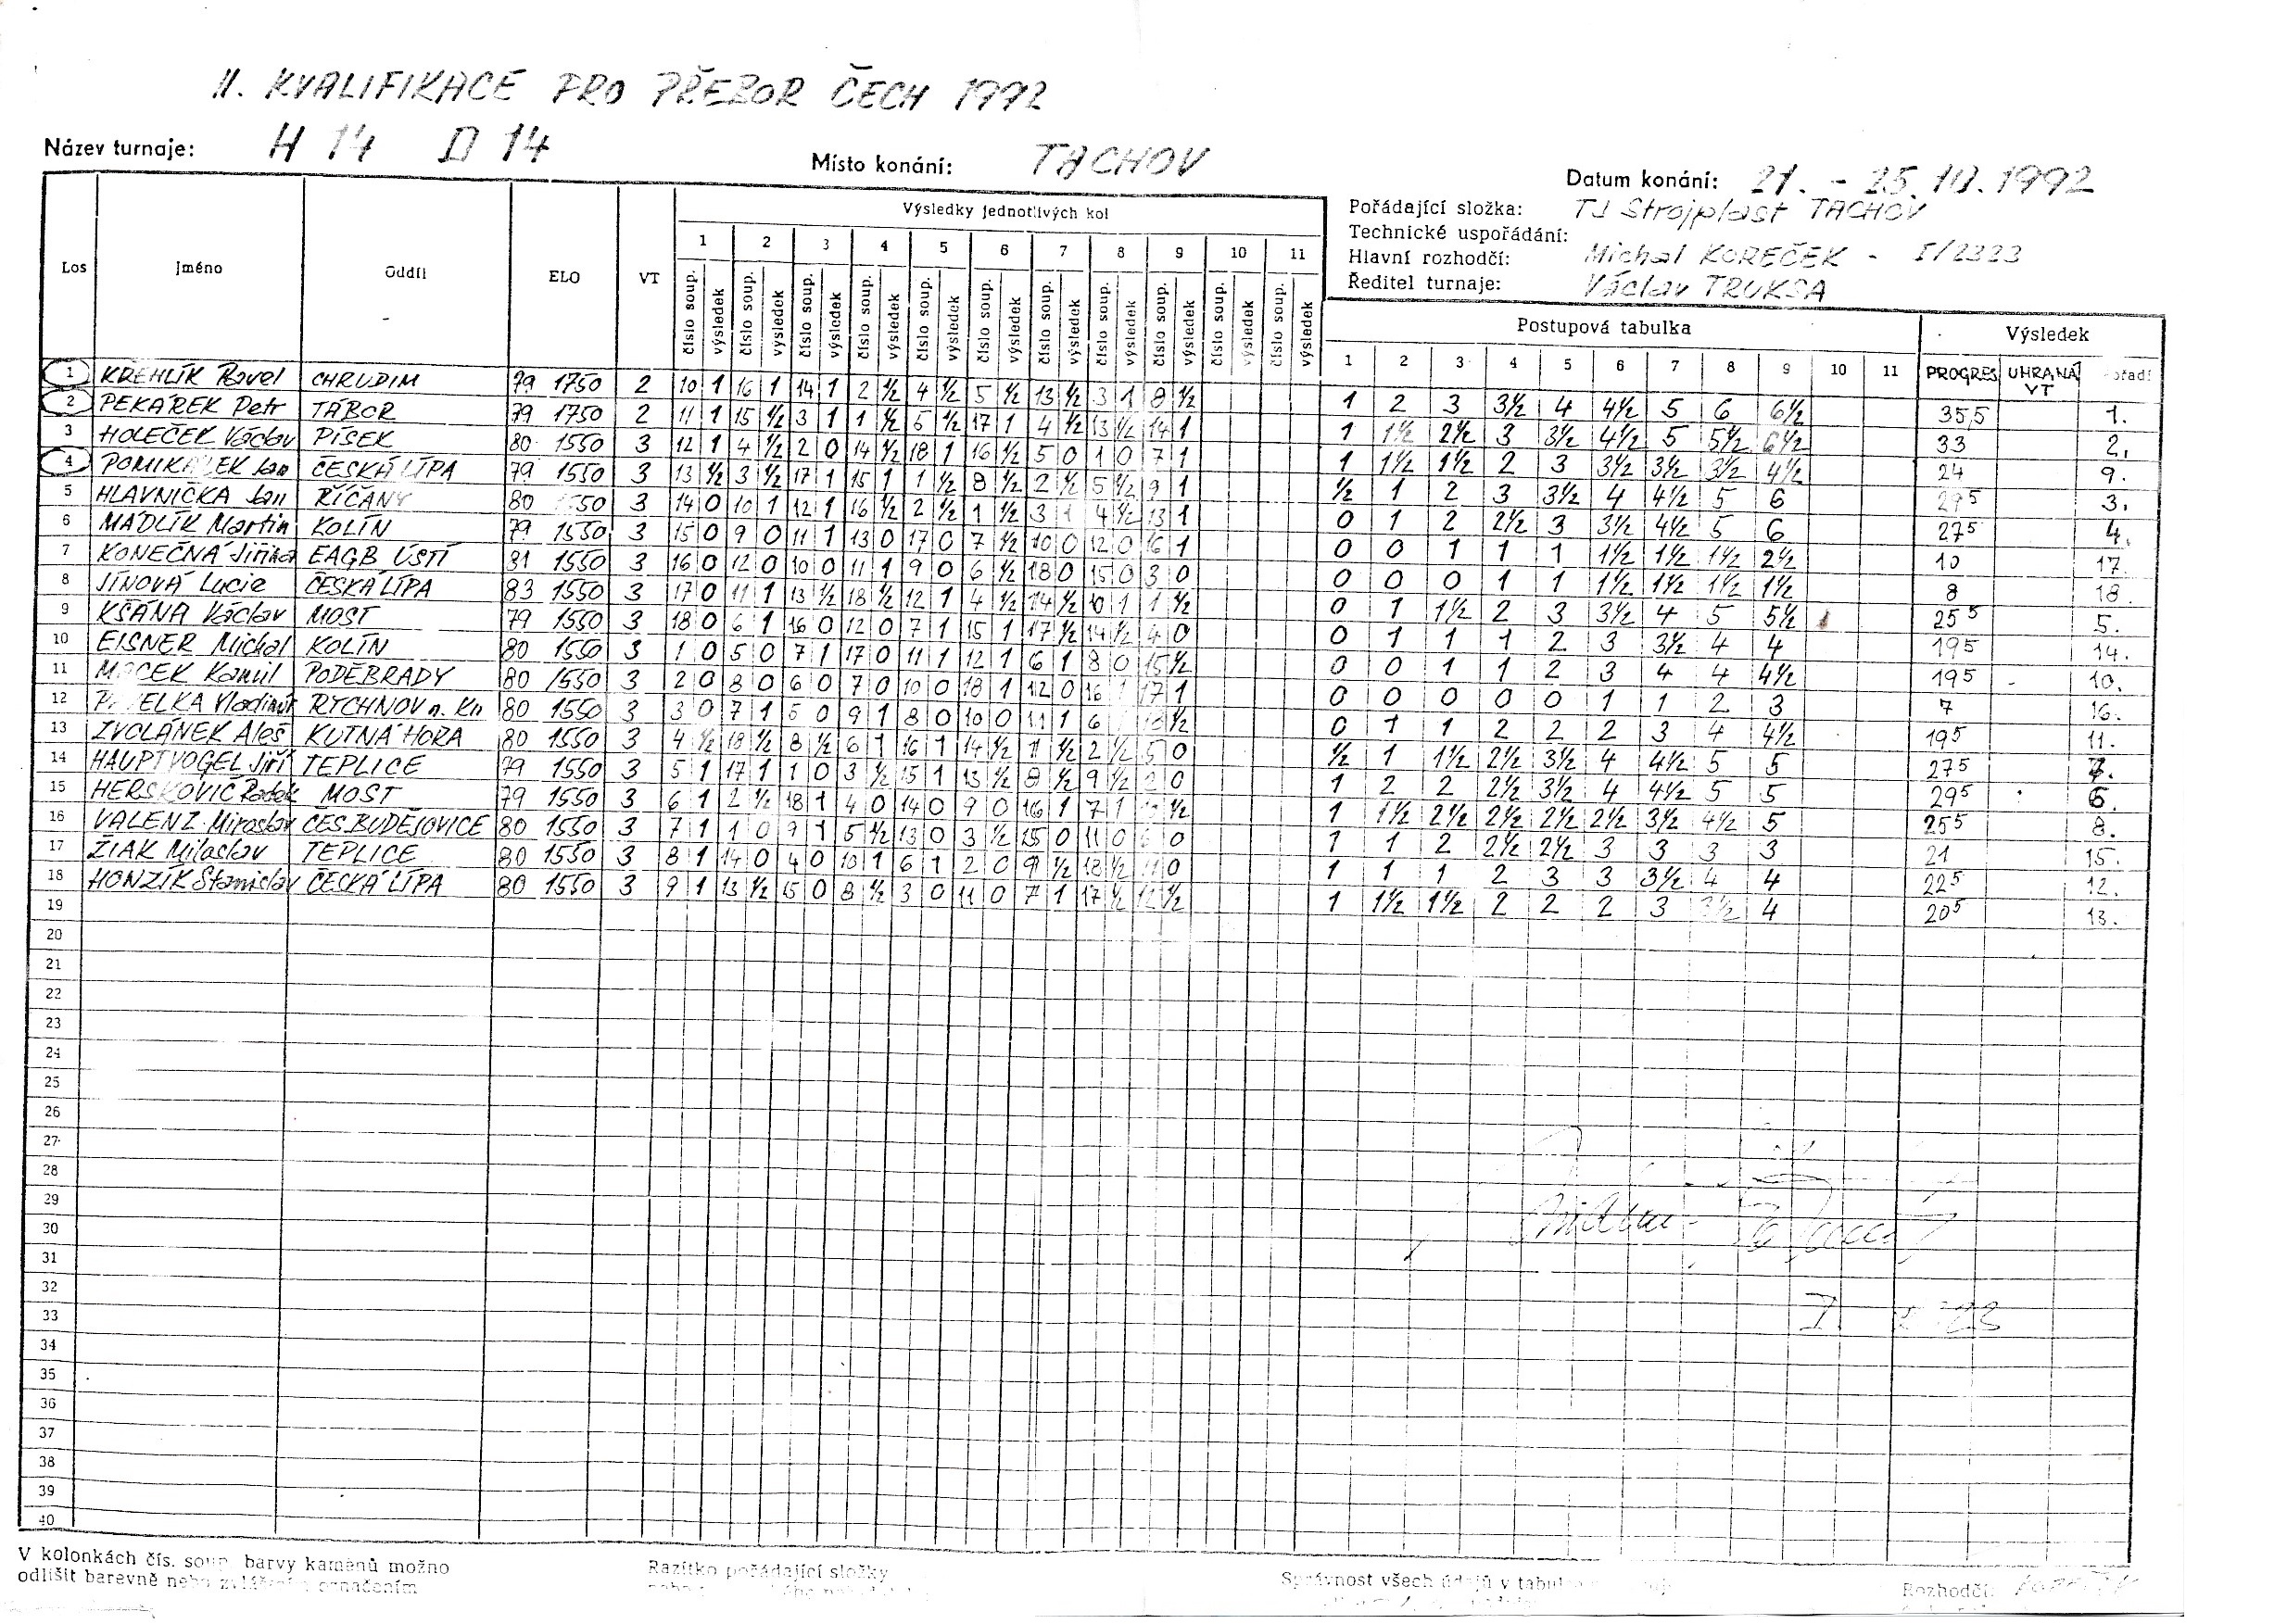 II. KVALIFIKACE PRO PŘEBOR ČECH 1992
Název turnaje: H 14 D 14 Místo konání: TACHOV Datum konání: 21. - 25.10.1992
Pořádající složka: TJ Strojplast TACHOV
Technické uspořádání:
Hlavní rozhodčí: Michal KOREČEK - I/2323
Ředitel turnaje: Václav TRUKSA
Los Jméno Oddíl ELO VT Výsledky jednotlivých kol Postupová tabulka Výsledek
1 2 3 4 5 6 7 8 9 10 11
číslo soup. výsledek číslo soup. výsledek číslo soup. výsledek číslo soup. výsledek číslo soup. výsledek číslo soup. výsledek číslo soup. výsledek číslo soup. výsledek číslo soup. výsledek číslo soup. výsledek číslo soup. výsledek
1 2 3 4 5 6 7 8 9 10 11 PROGRES UHRANÁ VT
1 KREHLÍK Pavel CHRUDIM 79 1750 2 10 1 16 1 14 1 2 ½ 4 ½ 5 ½ 13 ½ 3 1 8 ½ 1 2 3 3½ 4 4½ 5 6 6½ 35,5 1.
2 PEKÁREK Petr TÁBOR 79 1750 2 11 1 15 ½ 3 1 1 ½ 5 ½ 17 1 4 ½ 13 ½ 14 1 1 1½ 2½ 3 3½ 4½ 5 5½ 6½ 33 2.
3 HOLEČEK Václav PÍSEK 80 1550 3 12 1 4 ½ 2 0 14 ½ 18 1 16 ½ 5 0 1 0 7 1 1 1½ 1½ 2 3 3½ 3½ 3½ 4½ 24 9.
4 ČESKÁ LÍPA 79 1550 3 13 ½ 3 ½ 17 1 15 1 1 ½ 8 ½ 2 ½ 5 ½ 9 1 ½ 1 2 3 3½ 4 4½ 5 6 295 3.
5 HLAVNIČKA Jan ŘÍČANY 80 50 3 14 0 10 1 12 1 16 ½ 2 ½ 1 ½ 3 1 4 ½ 13 1 0 1 2 2½ 3 3½ 4½ 5 6 275 4.
6 MÁDLÍK Martin KOLÍN 79 1550 3 15 0 9 0 11 1 13 0 17 0 7 ½ 10 0 12 0 16 1 0 0 1 1 1 1½ 1½ 1½ 2½ 10 17.
7 KONEČNÁ Jiřina EAGB ÚSTÍ 81 1550 3 16 0 12 0 10 0 11 1 9 0 6 ½ 18 0 15 0 3 0 0 0 0 1 1 1½ 1½ 1½ 1½ 8 18.
8 JÍNOVÁ Lucie ČESKÁ LÍPA 83 1550 3 17 0 11 1 13 ½ 18 ½ 12 1 4 ½ 14 ½ 10 1 1 ½ 0 1 1½ 2 3 3½ 4 5 5½ 255 5.
9 KŠÁNA Václav MOST 79 1550 3 18 0 6 1 16 0 12 0 7 1 15 1 17 ½ 14 ½ 4 0 0 1 1 1 2 3 3½ 4 4 195 14.
10 EISNER Michal KOLÍN 80 1550 3 1 0 5 0 7 1 17 0 11 1 12 1 6 1 8 0 15 ½ 0 0 1 1 2 3 4 4 4½ 195 10.
11 Kamil PODĚBRADY 80 1550 3 2 0 8 0 6 0 7 0 10 0 18 1 12 0 16 1 17 1 0 0 0 0 0 1 1 2 3 7 16.
12 Vladimír RYCHNOV n. Kn 80 1550 3 3 0 7 1 5 0 9 1 8 0 10 0 11 1 6 18 ½ 0 1 1 2 2 2 3 4 4½ 195 11.
13 ZVOLÁNEK Aleš KUTNÁ HORA 80 1550 3 4 ½ 18 ½ 8 ½ 6 1 16 1 14 ½ 1 ½ 2 ½ 5 0 ½ 1 1½ 2½ 3½ 4 4½ 5 5 275 7.
14 HAUPTVOGEL Jiří TEPLICE 79 1550 3 5 1 17 1 1 0 3 ½ 15 1 13 ½ 8 ½ 9 ½ 2 0 1 2 2 2½ 3½ 4 4½ 5 5 295 6.
15 HERSKOVIČ Radek MOST 79 1550 3 6 1 2 ½ 18 1 4 0 14 0 9 0 16 1 7 1 ½ 1 1½ 2½ 2½ 2½ 2½ 3½ 4½ 5 255 8.
16 VALENZ Miroslav ČES. BUDĚJOVICE 80 1550 3 7 1 1 0 9 1 5 ½ 13 0 3 ½ 15 0 11 0 6 0 1 1 2 2½ 2½ 3 3 3 3 21 15.
17 ŽIAK Miloslav TEPLICE 80 1550 3 8 1 14 0 4 0 10 1 6 1 2 0 9 ½ 18 ½ 11 0 1 1 1 2 3 3 3½ 4 4 225 12.
18 HONZÍK Stanislav ČESKÁ LÍPA 80 1550 3 9 1 13 ½ 15 0 8 ½ 3 0 11 0 7 1 17 ½ 12 ½ 1 1½ 1½ 2 2 2 3 3½ 4 205 13.
19
20
21
22
23
24
25
26
27
28
29
30
31
32
33
34
35
36
37
38
39
40
V kolonkách čís. soup. barvy kamenů možno
odlišit barevně nebo označením
Razítko pořádající složky
Správnost všech údajů v
Rozhodčí: